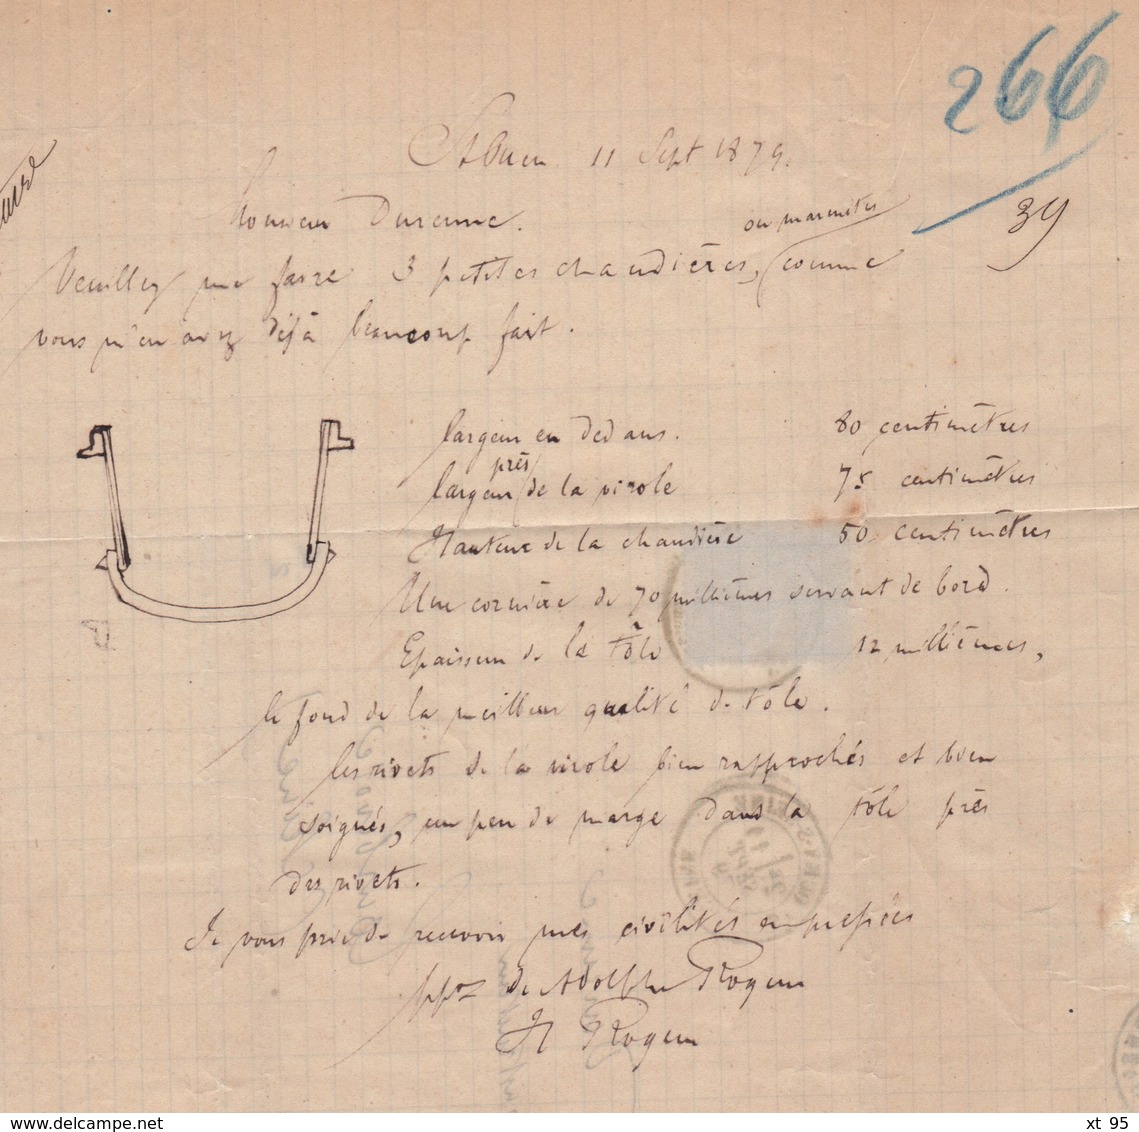 266
11 Sept 1879.
39
Monsieur Durenne.
ou marmites
Veuillez me faire 3 petites chaudières, comme
vous m'en avez déjà beaucoup fait.
largeur en dedans. 80 centimètres
près
largeur de la virole 75 centimètres
Hauteur de la chaudière 50 centimètres
Une cornière de 70 millièmes servant de bord.
Epaisseur de la tôle 12 millièmes,
le fond de la meilleur qualité de tôle.
les rivets de la virole bien rapprochés et bien
soignés, un peu de marge dans la tôle près
des rivets.
Je vous prie de recevoir mes civilités empressées
ppon de Adolphe Rogem
H Rogem
xt 95